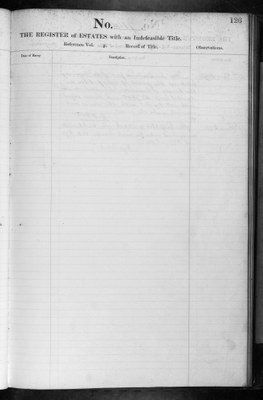 No.
126
THE REGISTER of ESTATES with an Indefeasible Title.
Reference Vol. p. Record of Title.
Observations.
Date of Entry.
Description.